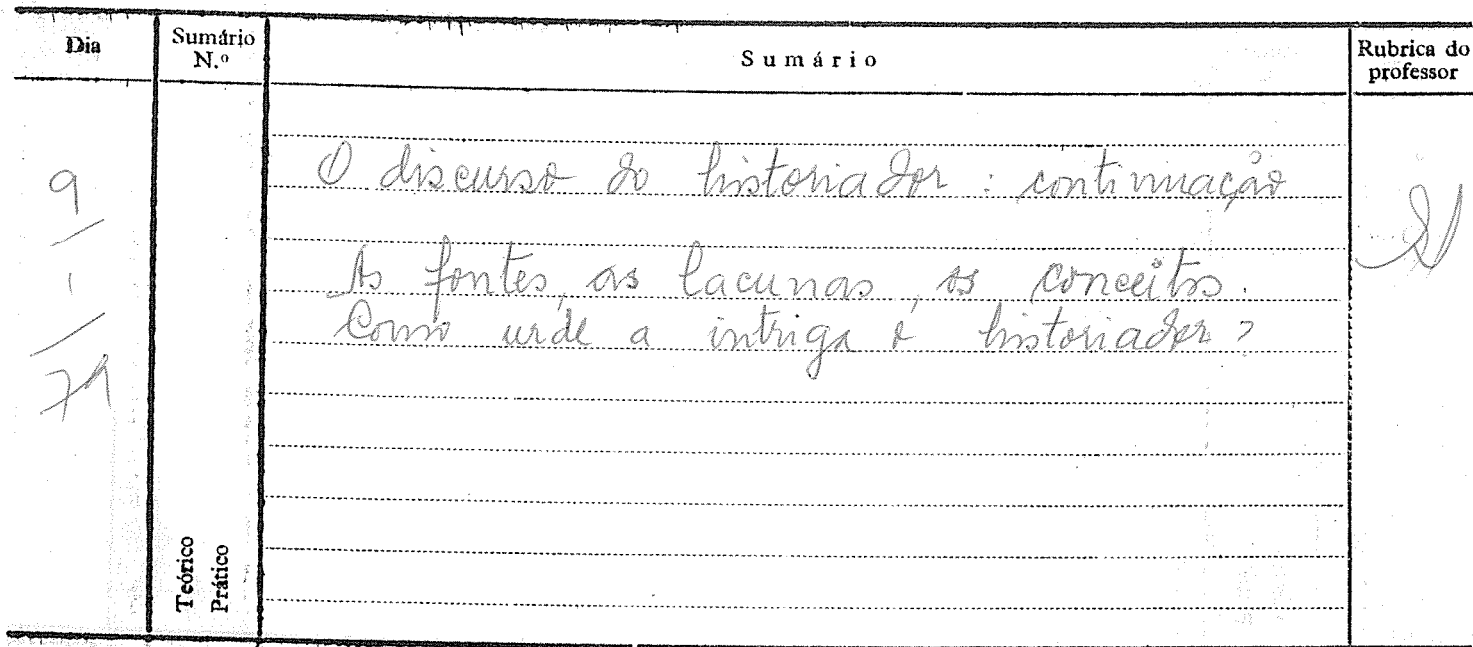 Dia
Sumário N.º
Sumário
Rubrica do professor
9
1
79
O discurso do historiador : continuação
As fontes, as lacunas, os conceitos.
Como urde a intriga o historiador ?
Teórico
Prático